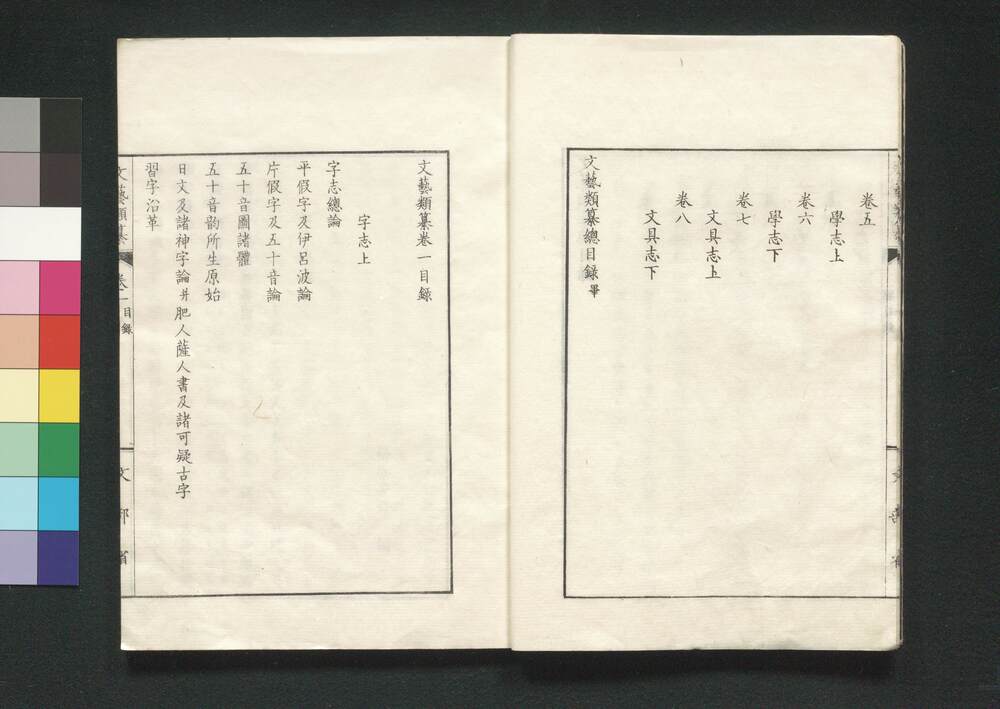 卷五
學志上
卷六
學志下
卷七
文具志上
卷八
文具志下
文藝類纂總目錄畢
文藝類纂卷一目錄
字志上
字志總論
平假字及伊呂波論
片假字及五十音論
五十音圖諸體
五十音韵所生原始
日文及諸神字論并肥人薩人書及諸可疑古字
習字沿革
文藝類纂 卷一目錄 文部省